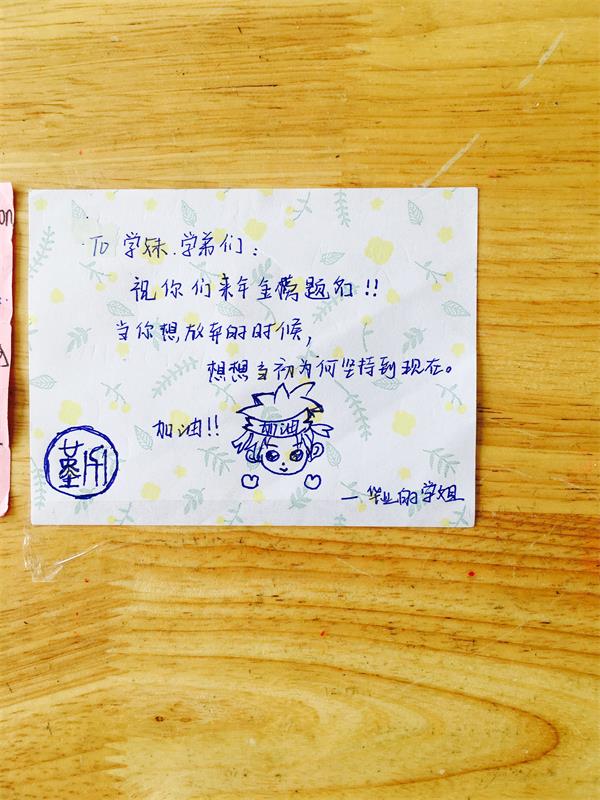 To 学妹.学弟们：
祝你们来年金榜题名!!
当你想放弃的时候,
想想当初为何坚持到现在。
加油!!
加油
—毕业的学姐
on